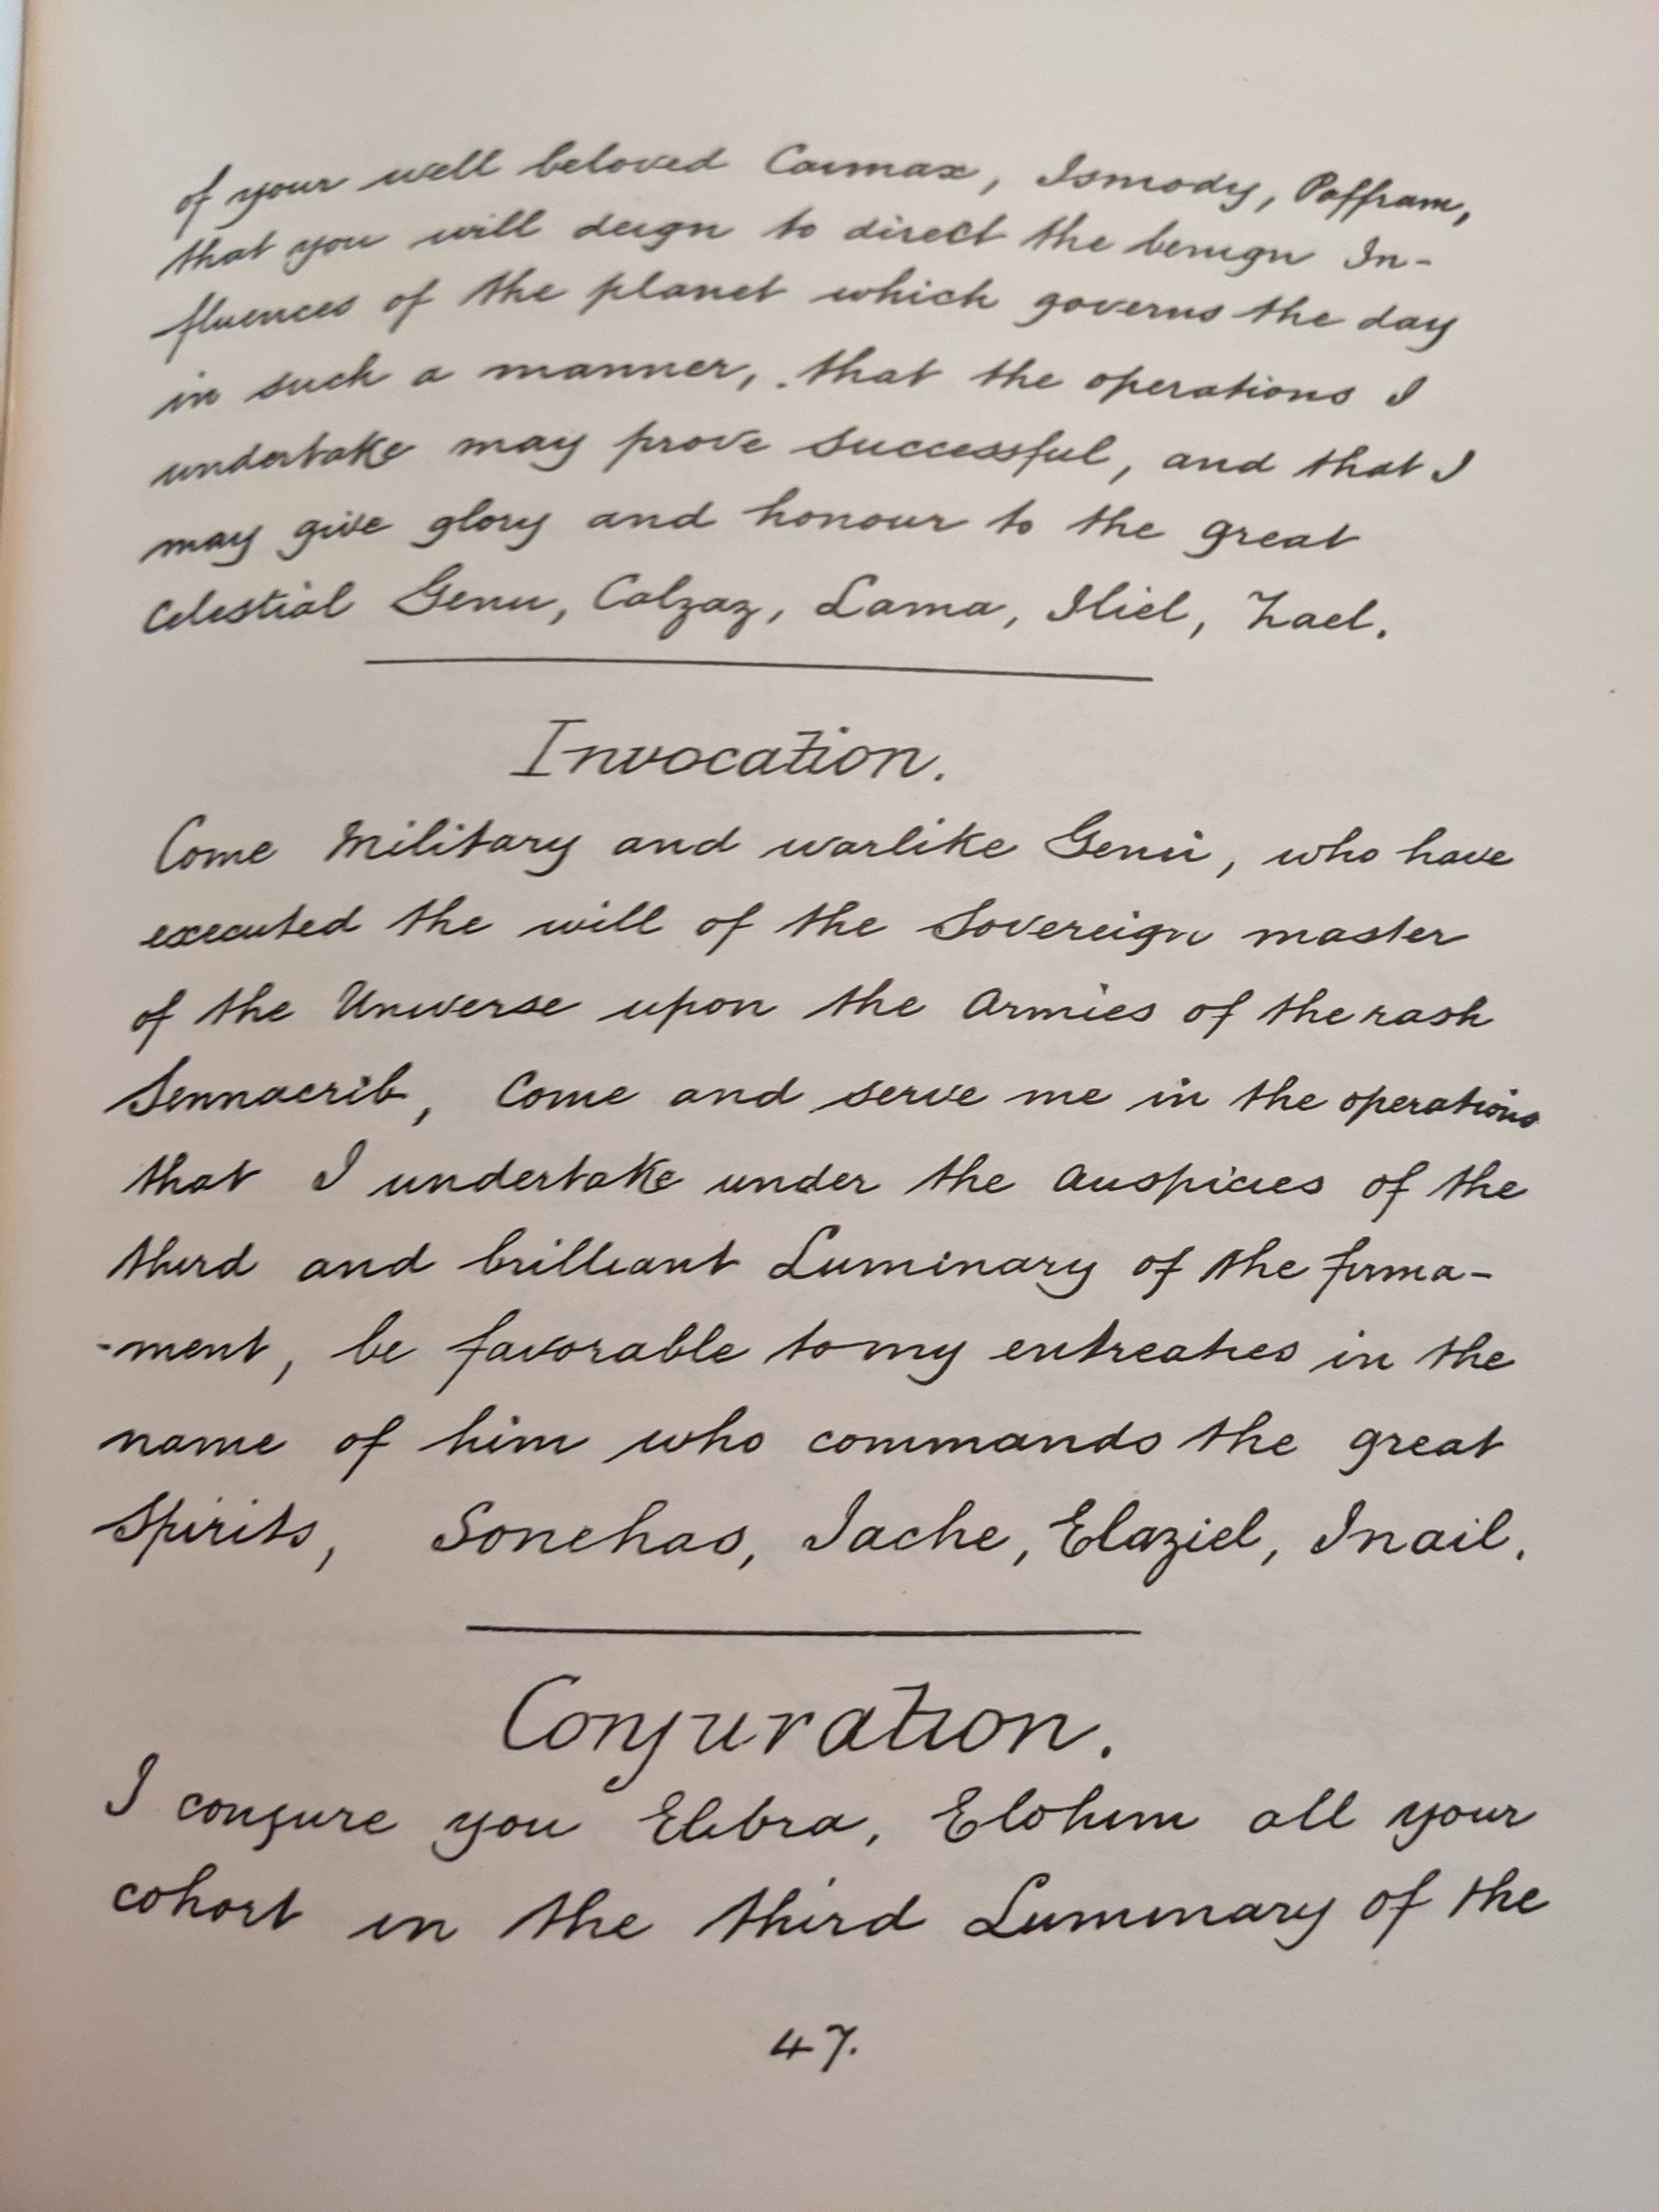 of your well beloved Carmax, Ismody, Paffram,
that you will deign to direct the benign In-
fluences of the planet which governs the day
in such a manner, that the operations I
undertake may prove successful, and that I
may give glory and honour to the great
Celestial Genii, Calzaz, Lama, Iliel, Zael.
Invocation.
Come Military and warlike Genii, who have
executed the will of the Sovereign master
of the Universe upon the Armies of the rash
Sennacrib, Come and serve me in the operations
that I undertake under the auspicies of the
third and brilliant Luminary of the firma-
-ment, be favorable to my entreaties in the
name of him who commands the great
Spirits, Sonehas, Iache, Elaziel, Inail.
Conjuration.
I conjure you Elibra, Elohim all your
cohort in the third Luminary of the
47.